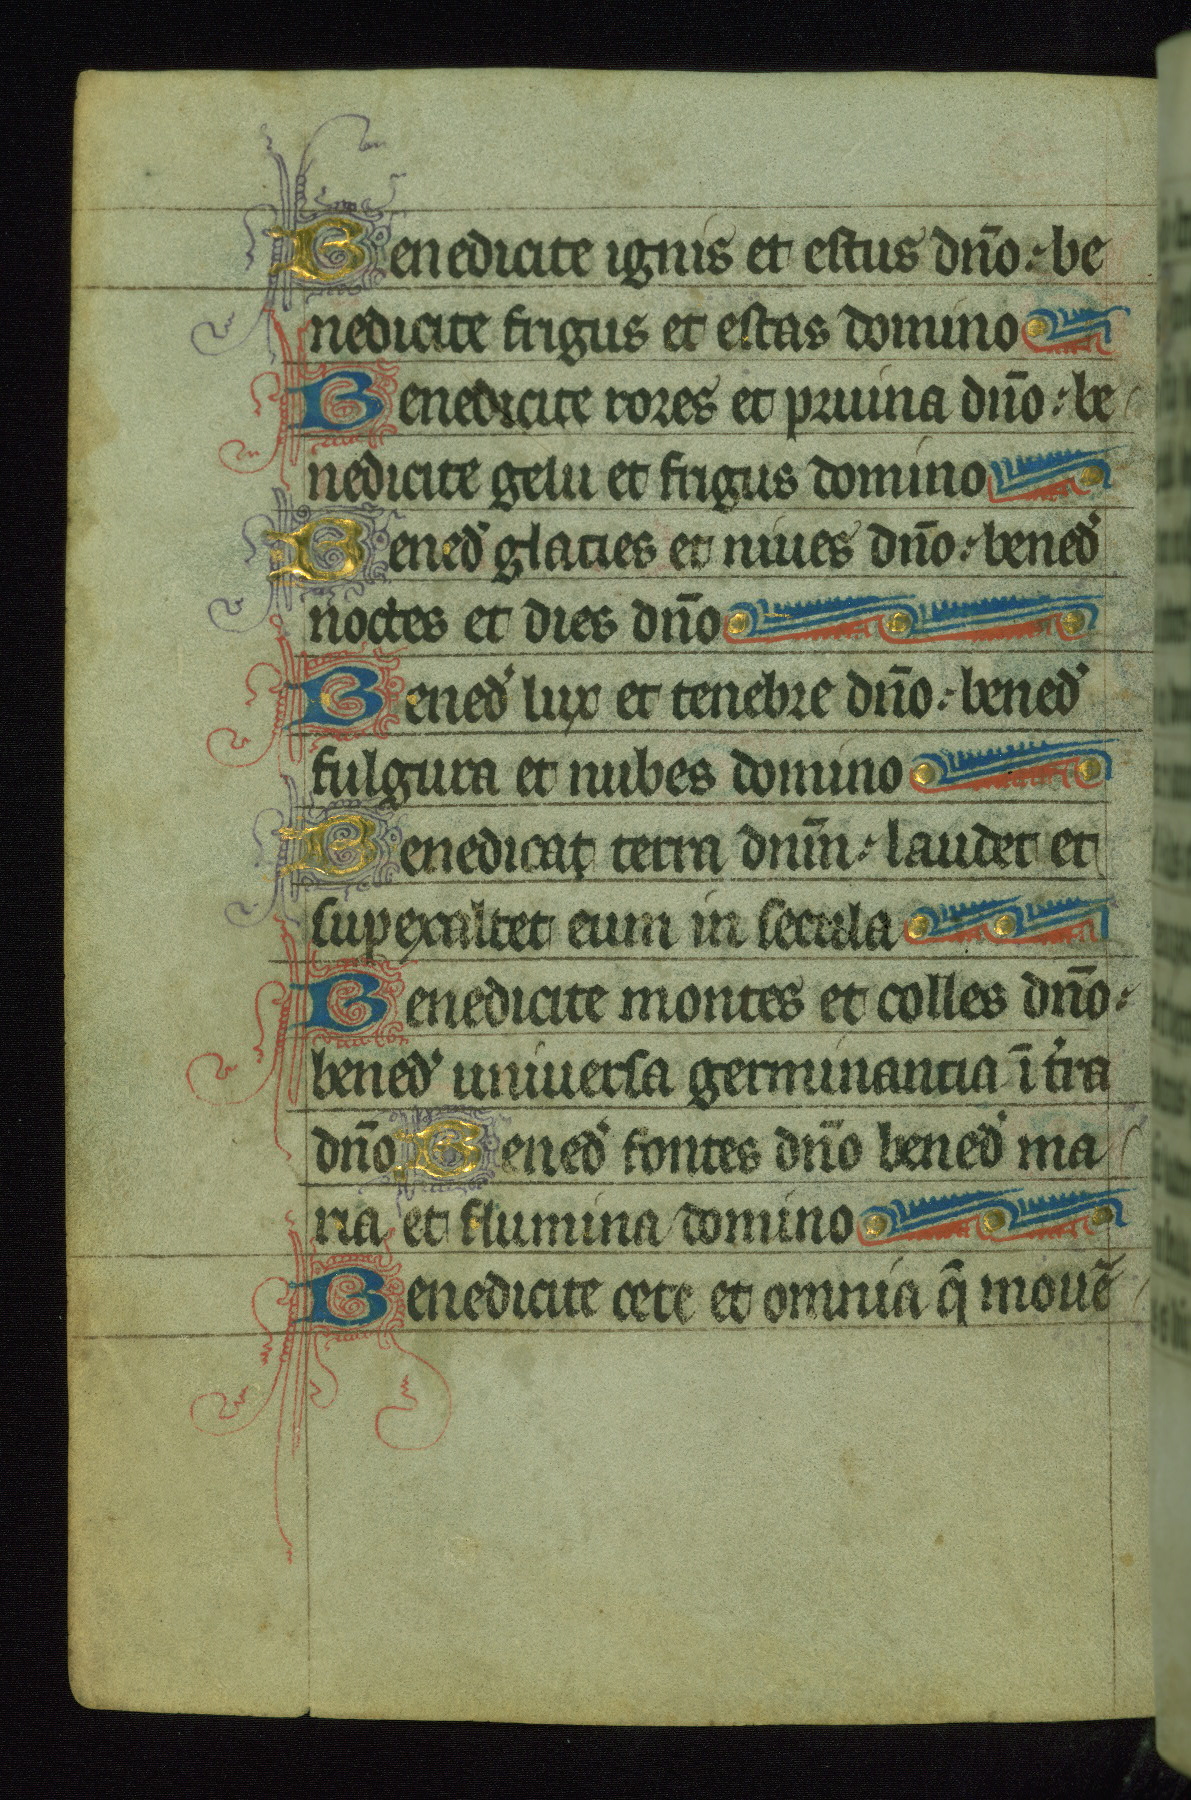 Benedicite ignis et estus dn̄o : be
nedicite frigus et estas domino
Benedicite rores et pruina dn̄o : be
nedicite gelu et frigus domino
Bened' glacies et niues dn̄o : bened'
noctes et dies dn̄o
Bened' lux et tenebre dn̄o : bened'
fulgura et nubes domino
Benedicat terra dnm̄ : laudet et
supexaltet eum in secula
Benedicite montes et colles dn̄o :
bened' uniuersa germinancia ī t'ra
dn̄o Bened' fontes dn̄o bened' ma
ria et flumina domino
Benedicite cete et omnia q̄ mouē